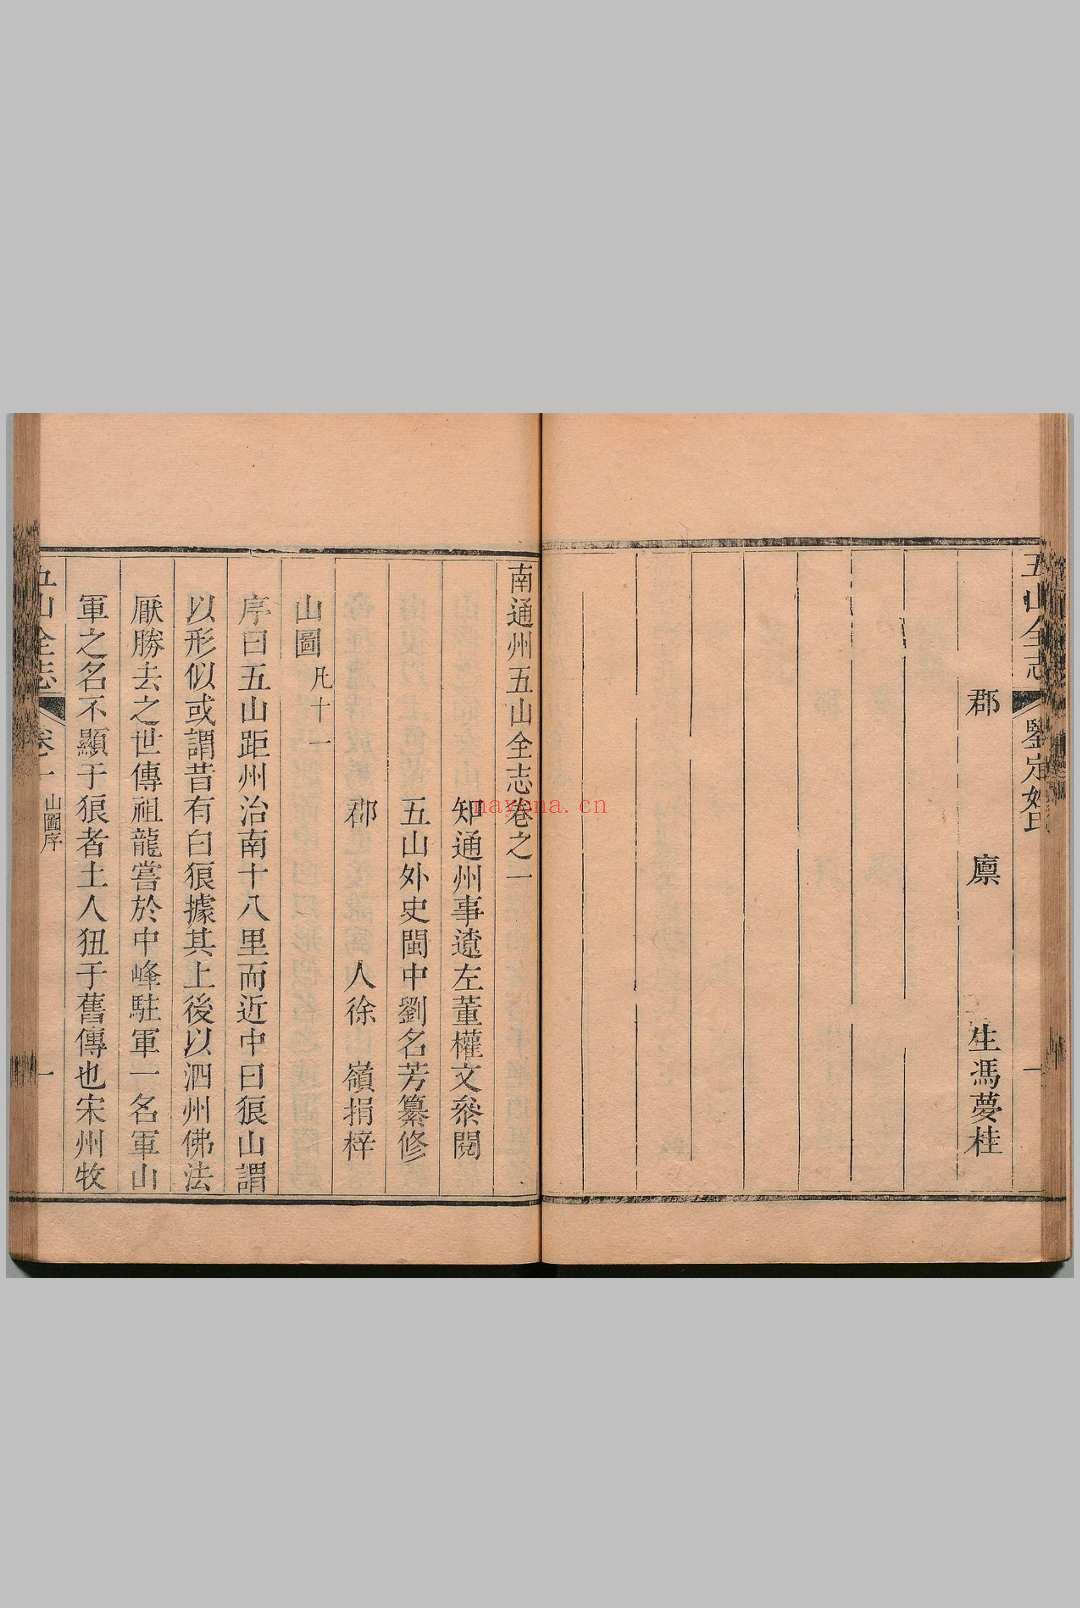 五山全志
鑒定姓氏
一
郡　廩　生馮夢桂
南通州五山全志卷之一
知通州事遼左董權文叅閱
五山外史閩中劉名芳纂修
郡　人徐　嶺捐梓
山圖 凡十一
序曰五山距州治南十八里而近中曰狼山謂
以形似或謂昔有白狼據其上後以泗州佛法
厭勝去之世傳祖龍嘗於中峰駐軍一名軍山
軍之名不顯于狼者土人狃于舊傳也宋州牧
五山全志
卷一
山圖序
一
nayona.cn